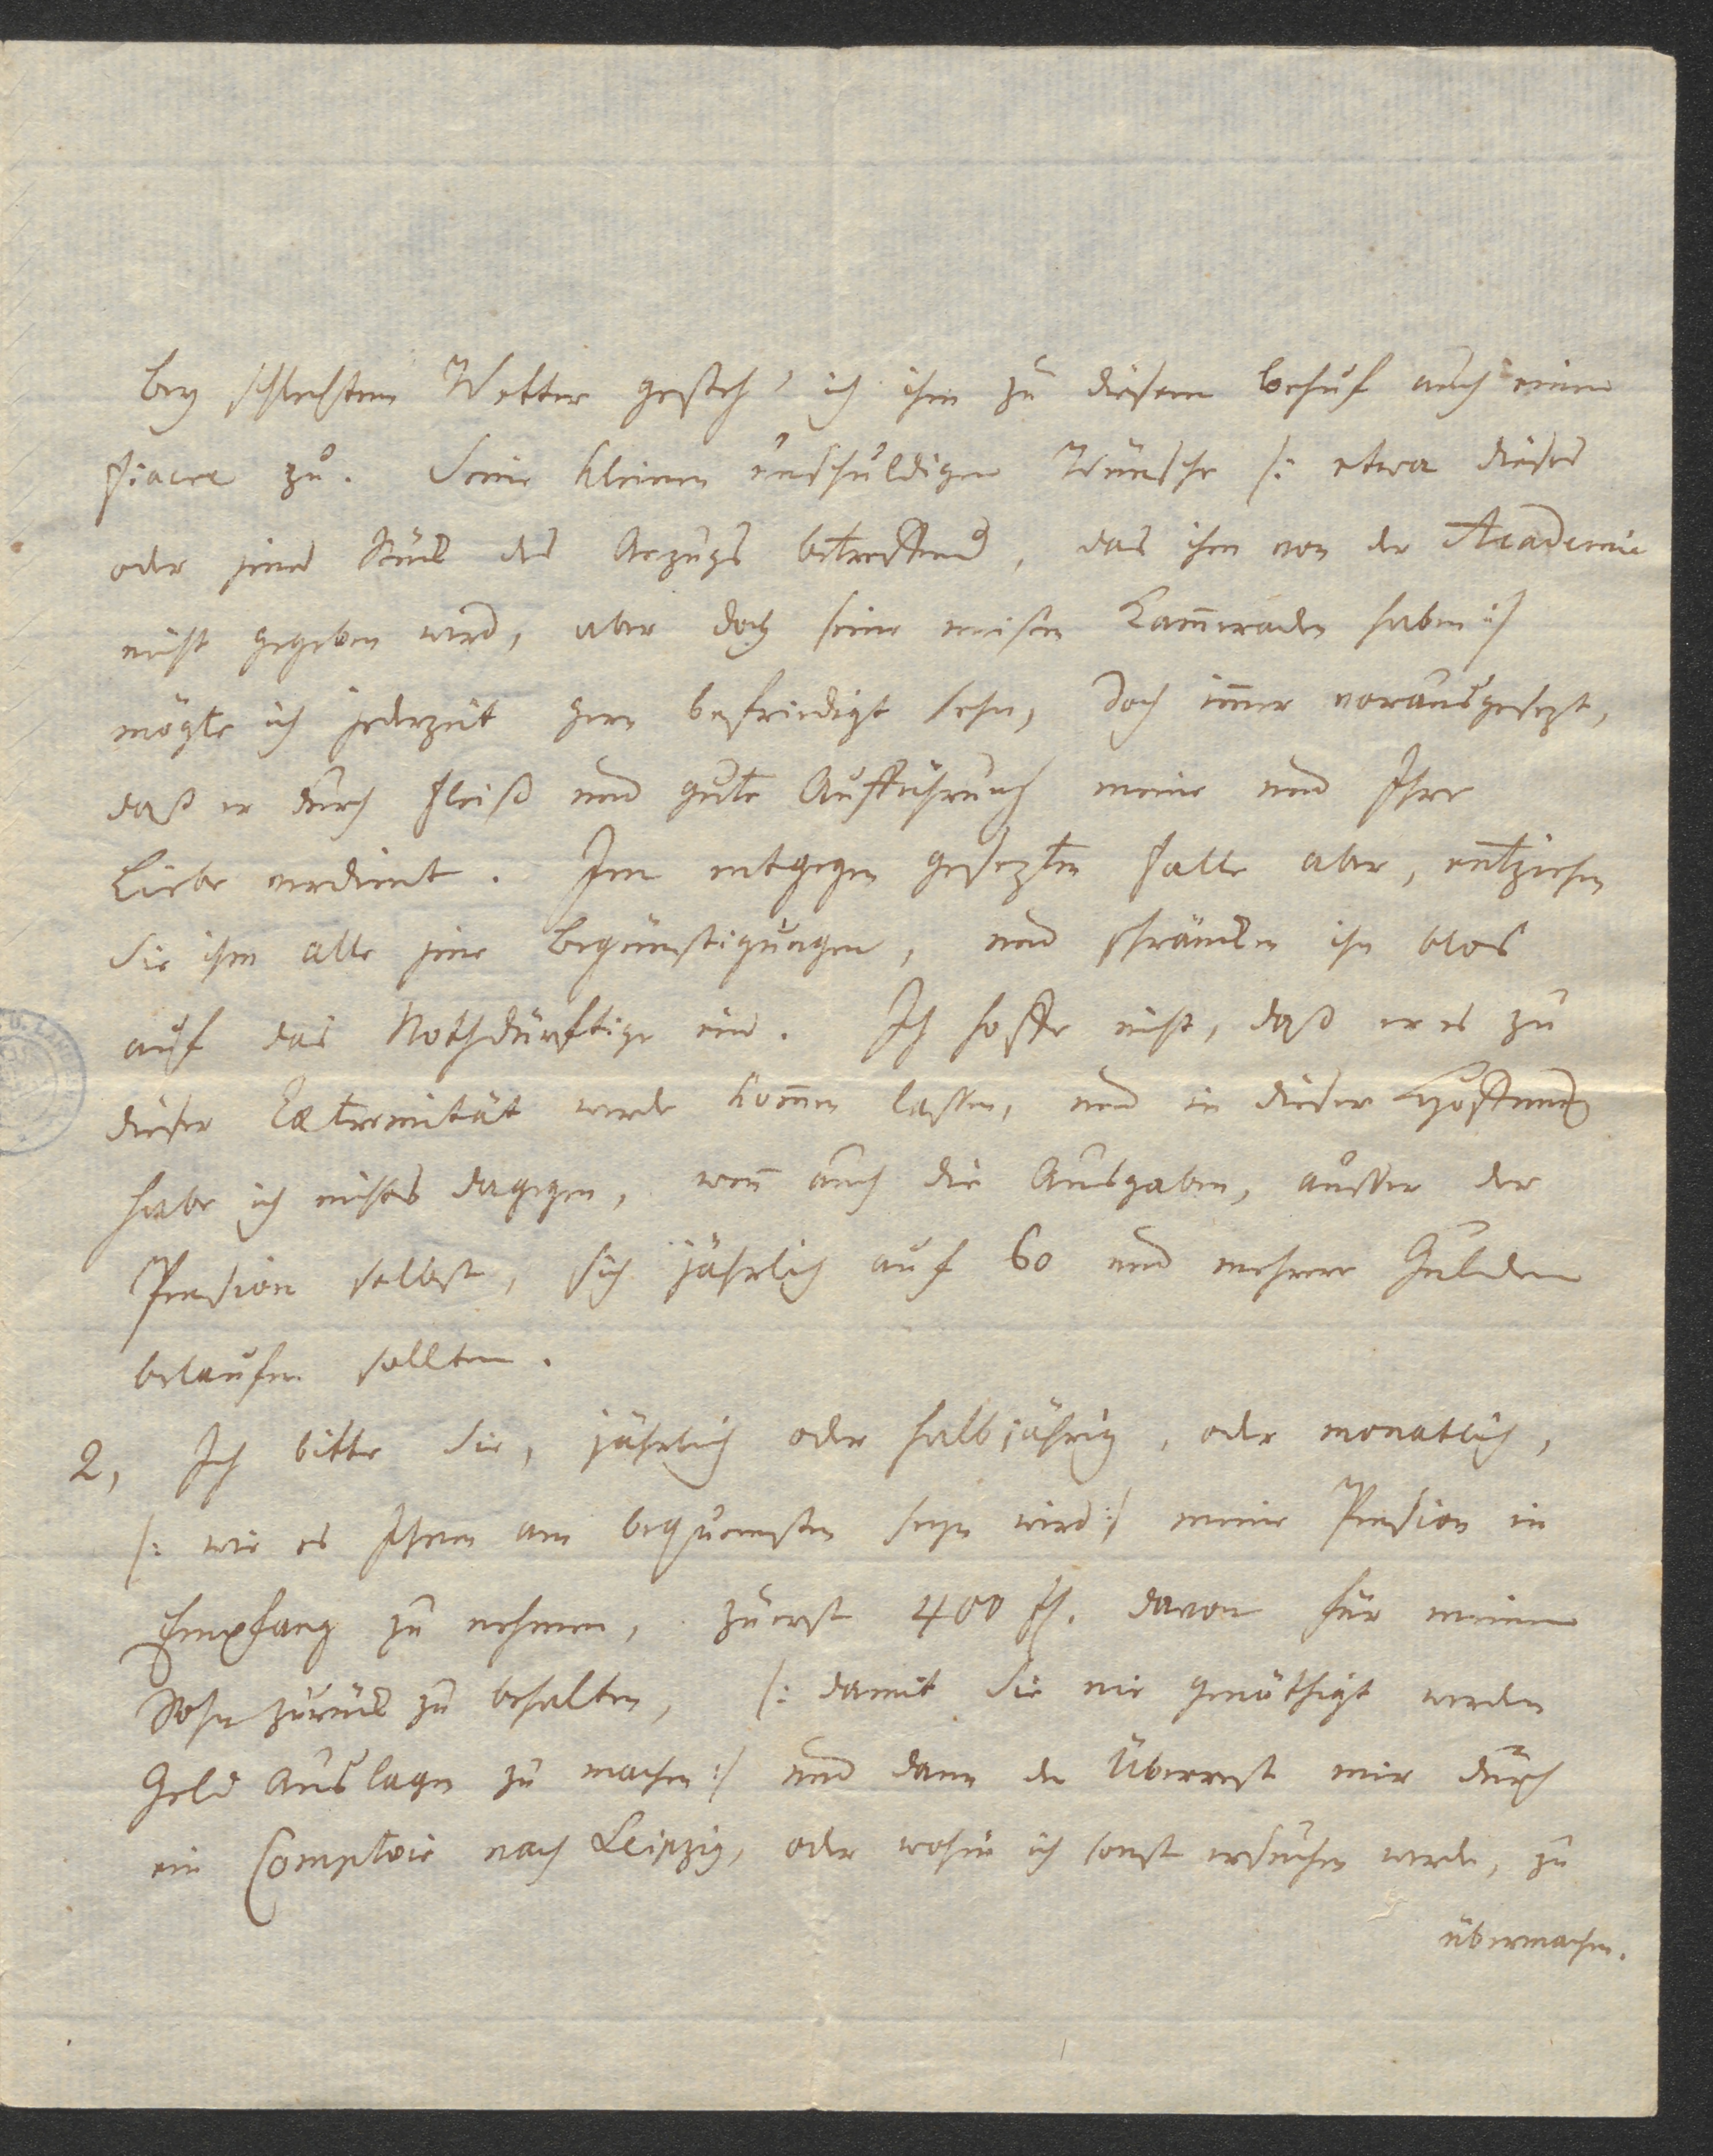 bey schlechtem Wetter gesteh' ich ihm zu diesem Behuf auch einen
Fiacre zu. Seine kleinen unschuldigen Wünsche /: etwa dieses
oder jenes Stück des Anzugs betreffend, das ihm von der Academie
nicht gegeben wird, aber doch seine meisten Kam̄eraden haben :/
mögte ich jederzeit gern befriedigt sehn, doch im̄er vorausgesezt,
daß er durch Fleiß und gute Aufführung meine und Ihre
Liebe verdient. Im entgegen gesezten Falle aber, entziehen
Sie ihm alle jene Begünstigungen, und schränken ihn blos
auf das Nothdürftige ein. Ich hoffe nicht, daß er es zu
dieser Extremität werde kom̄en lassen, und in dieser Hoffnung
habe ich nichts dagegen, wen̄ auch die Ausgaben, ausser der
Pension selbst, sich jährlich auf 60 und mehrere Gulden
belaufen sollten.
2, Ich bitte Sie, jährlich oder halbjährig, oder monatlich,
/: wie es Ihnen am bequemsten seyn wird :/ meine Pension in
Empfang zu nehmen, zuerst 400 fl. davon für meinen
Sohn zurück zu behalten, /: damit Sie nie genöthigt werden
Geld Auslagen zu machen :/ und dann den Überrest mir durch
ein Comptoir nach Leipzig, oder wohin ich sonst ersuchen werde, zu
übermachen.